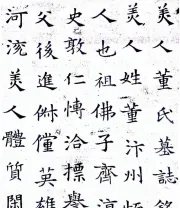 美人董氏墓誌銘
美人姓董汴州恤
人也祖佛子齊涼
史敦仁博洽標譽
父後進俶儻英雄
河渷美人體質閑